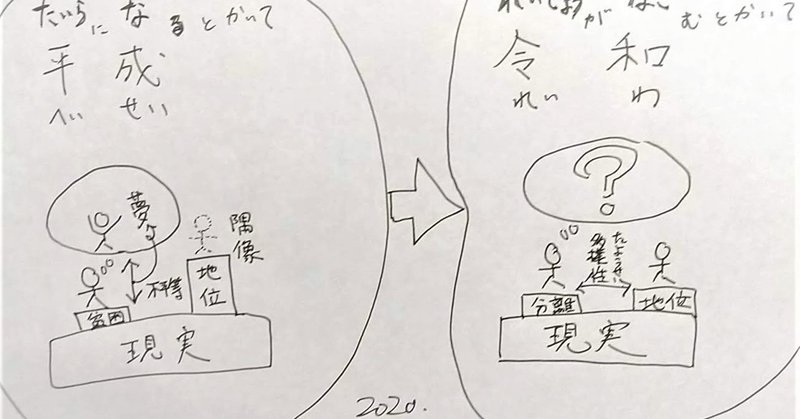 たいらに なるとかいて
平成
へい せい
夢
隅像
地位
不等
貧困
現実
が
むとかいて
令和
れい わ
?
たようせい
多様性
分離
地位
現実
2020.